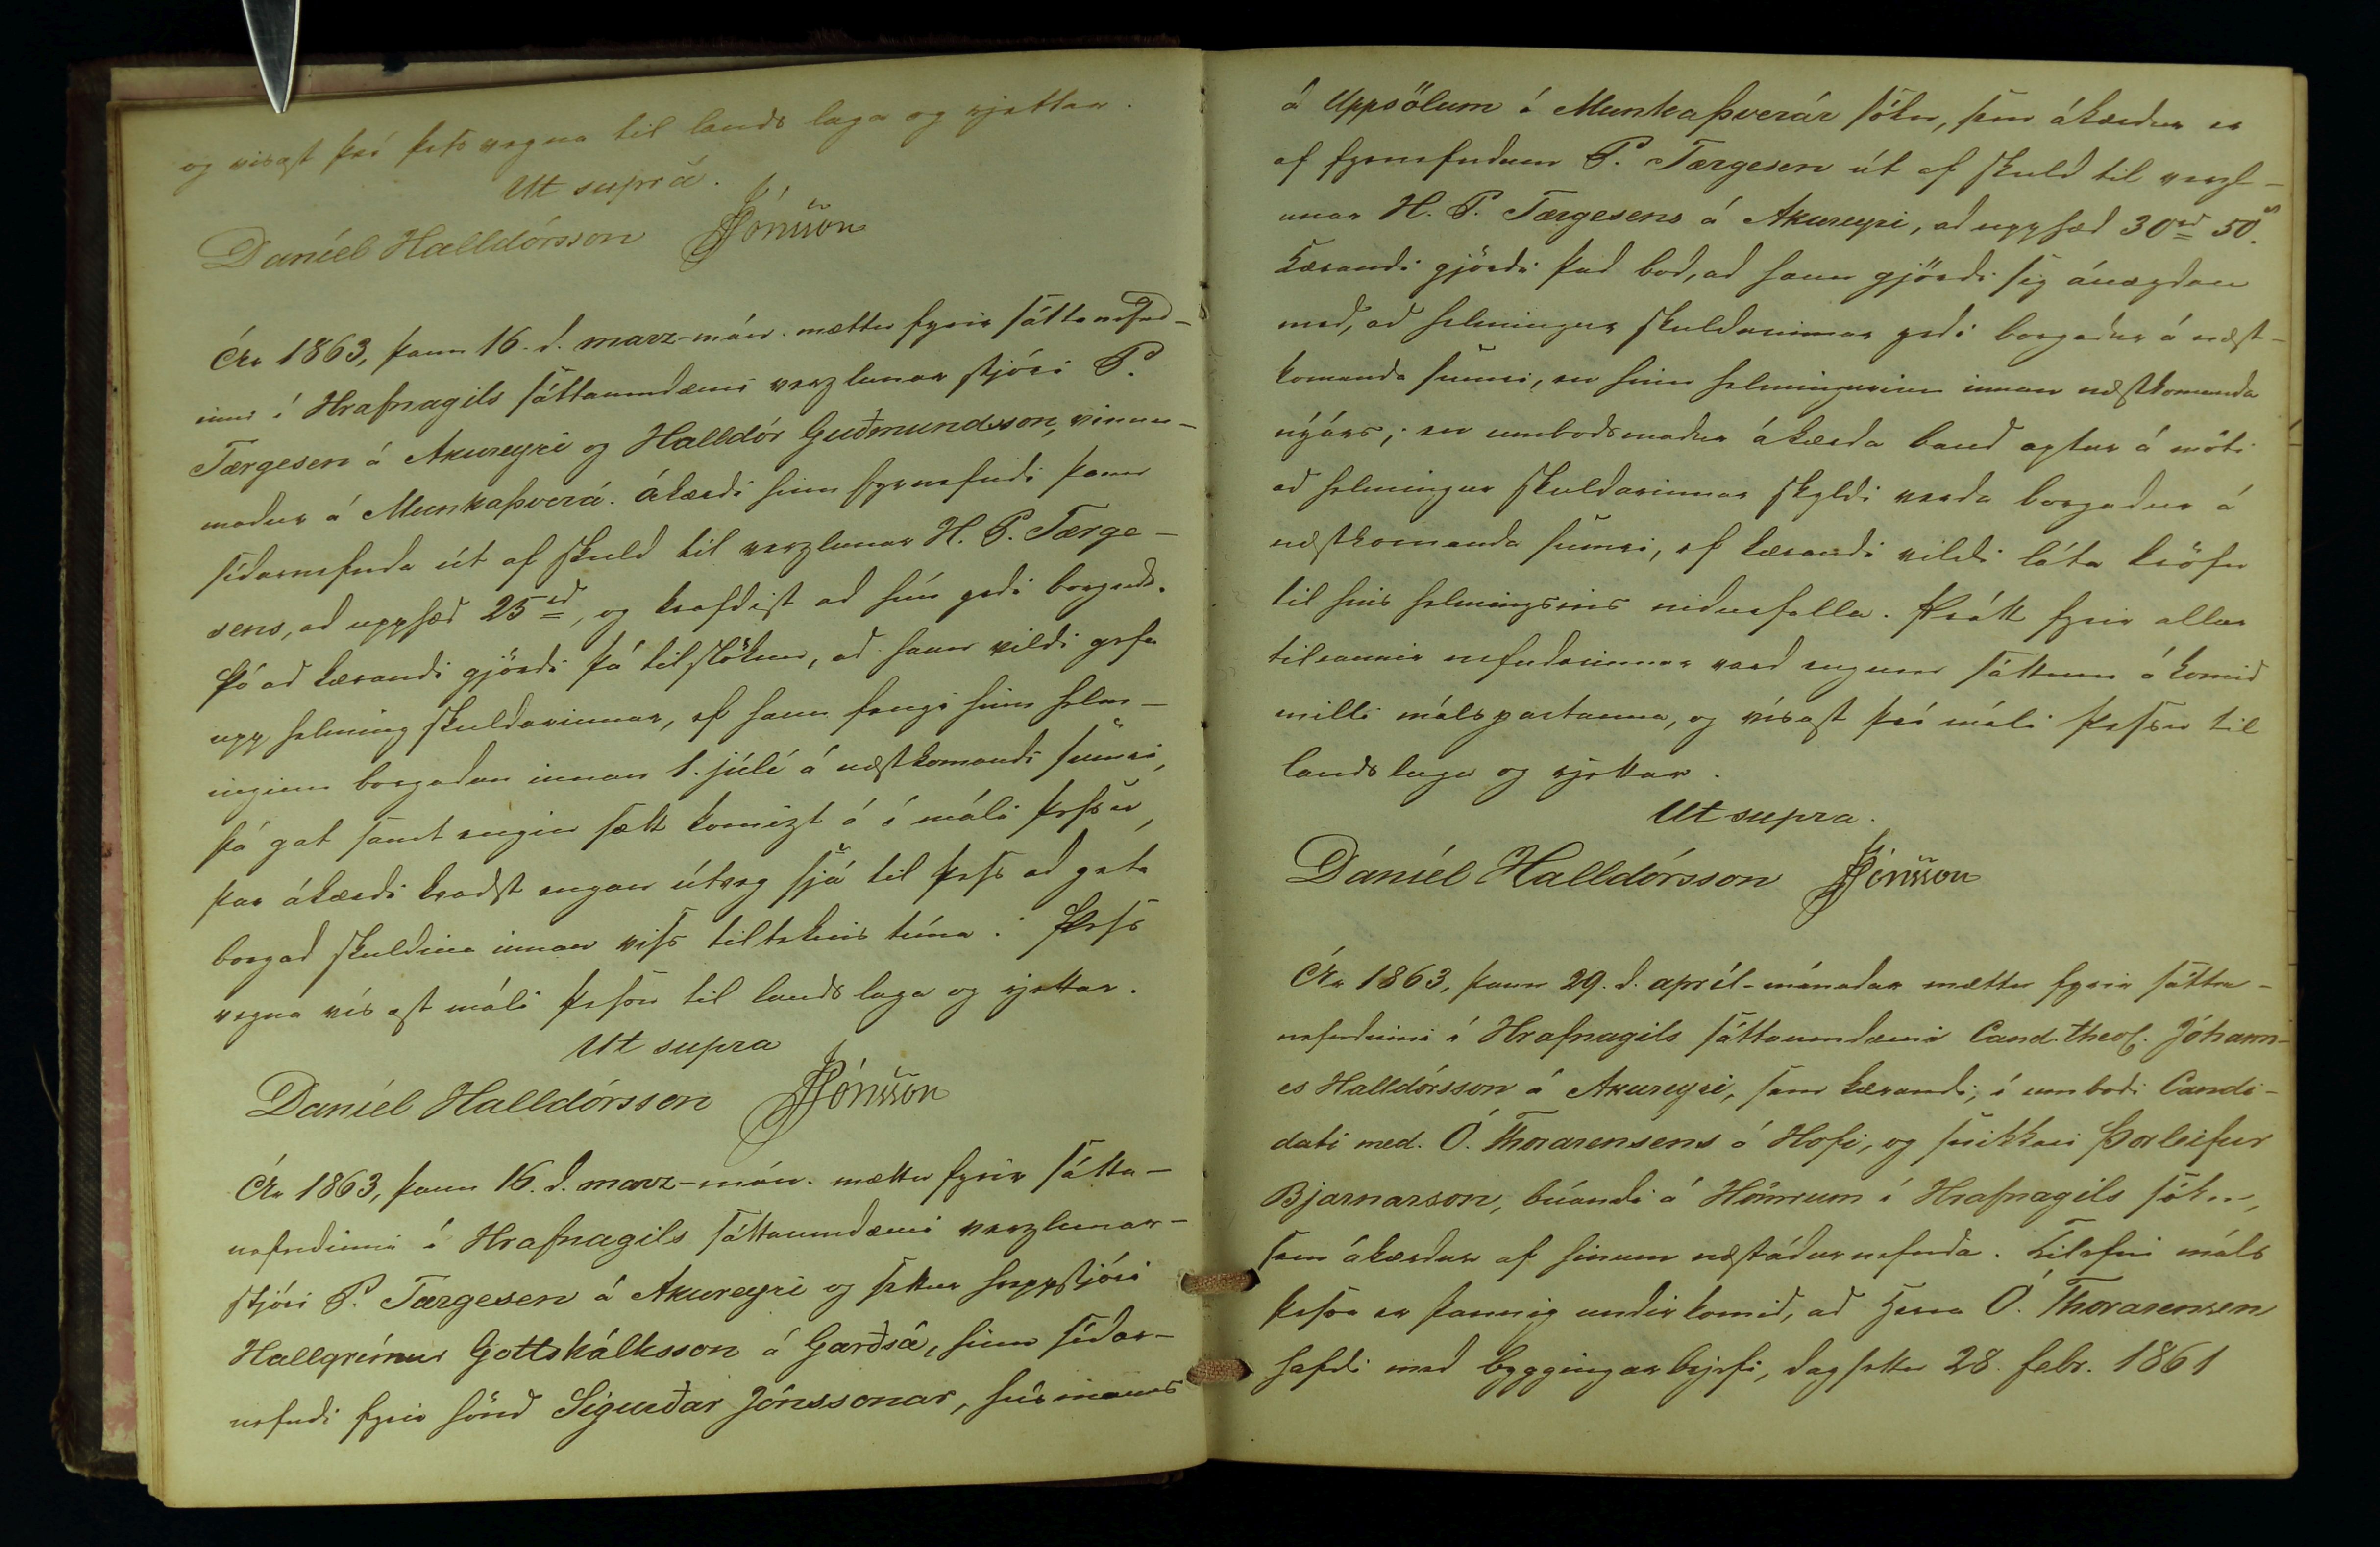 og visast því þess vegna til lands laga og rjettar.
Ut supra.
Daníel Halldórsson JJónsson
Ár 1863, þann 16. d. marz-mán. mættu fyrir sáttanefnd-
inni í Hrafnagils sáttaumdæmi verzlunar stjóri P.
Tærgesen á Akureyri og Halldór Guðmundsson, vinnu-
madur á Munkaþverá. Ákærdi hinn fyrnefndi þann
sídarnefnda út af skuld til verzlunar H. P. Tærge-
sens, ad upphæd 25 rd, og krafdist ad hún yrdi borgud.
Þó ad kærandi gjördi þá tilslökun, ad hann vildi gefa
upp helming skuldarinnar, ef hann fengi hinn helm-
inginn borgadan innan 1. júlí á næstkomandi sumri,
þá gat samt engin sætt komizt á í máli þessu,
þar ákærdi kvadst engan útveg sjá til þess ad geta
borgad skuldina innan viss tiltekins tíma. Þess
vegna vísast máli þessu til lands laga og rjettar.
Ut supra
Daníel Halldórsson JJónsson
Ár 1863, þann 16. d. marz-mán. mættu fyrir sátta-
nefndinni í Hrafnagils sáttaumdæmi verzlunar-
stjóri P. Tærgesen á Akureyri og settur hreppstjóri
Hallgrímur Gottskálksson á Garðsá, hinn sídar-
nefndi fyrir hönd Sigurðar Jónssonar, húsmanns
á Uppsölum í Munkaþverár sókn, sem ákærdur er
af fyrnefndum P. Tærgesen út af skuld til verzl-
unar H. P. Tærgesens á Akureyri, ad upphæd 30 rd 50 s.
Kærandi gjördi þad bod, ad hann gjördi sig ánægdan
med, ad helmingur skuldarinnar yrdi borgadur á næst-
komanda sumri, en hinn helmingurinn innan næstkomanda
nýárs; en umbodsmadur ákærda baud aptur á móti
ad helmingur skuldarinnar skyldi verda borgadur á
næstkomanda sumri, ef kærandi vildi láta kröfu
til hins helmingsins nidurfalla. Þrátt fyrir allar
tilraunir nefndarinnar vard engum sáttum á komid
milli málspartanna, og vísast því máli þessu til
landslaga og rjettar.
Ut supra.
Daníel Halldórsson JJónsson
Ár 1863, þann 29. d. apríl-mánadar mættu fyrir sátta-
nefndinni í Hrafnagils sáttaumdæmi Cand. theol. Jóhann-
es Halldórsson á Akureyri, sem kærandi, í umbodi Candi-
dati med. Ó. Thorarensens á Hofi, og snikkari Þorleifur
Bjarnarson, búandi á Hömrum í Hrafnagils sókn,
sem ákærdur af hinum næstádurnefnda. Tilefni máls
þessa er þannig undir komid, ad Herra Ó. Thorarensen
hafdi med byggingarbrjefi, dagsettu 28. febr. 1861